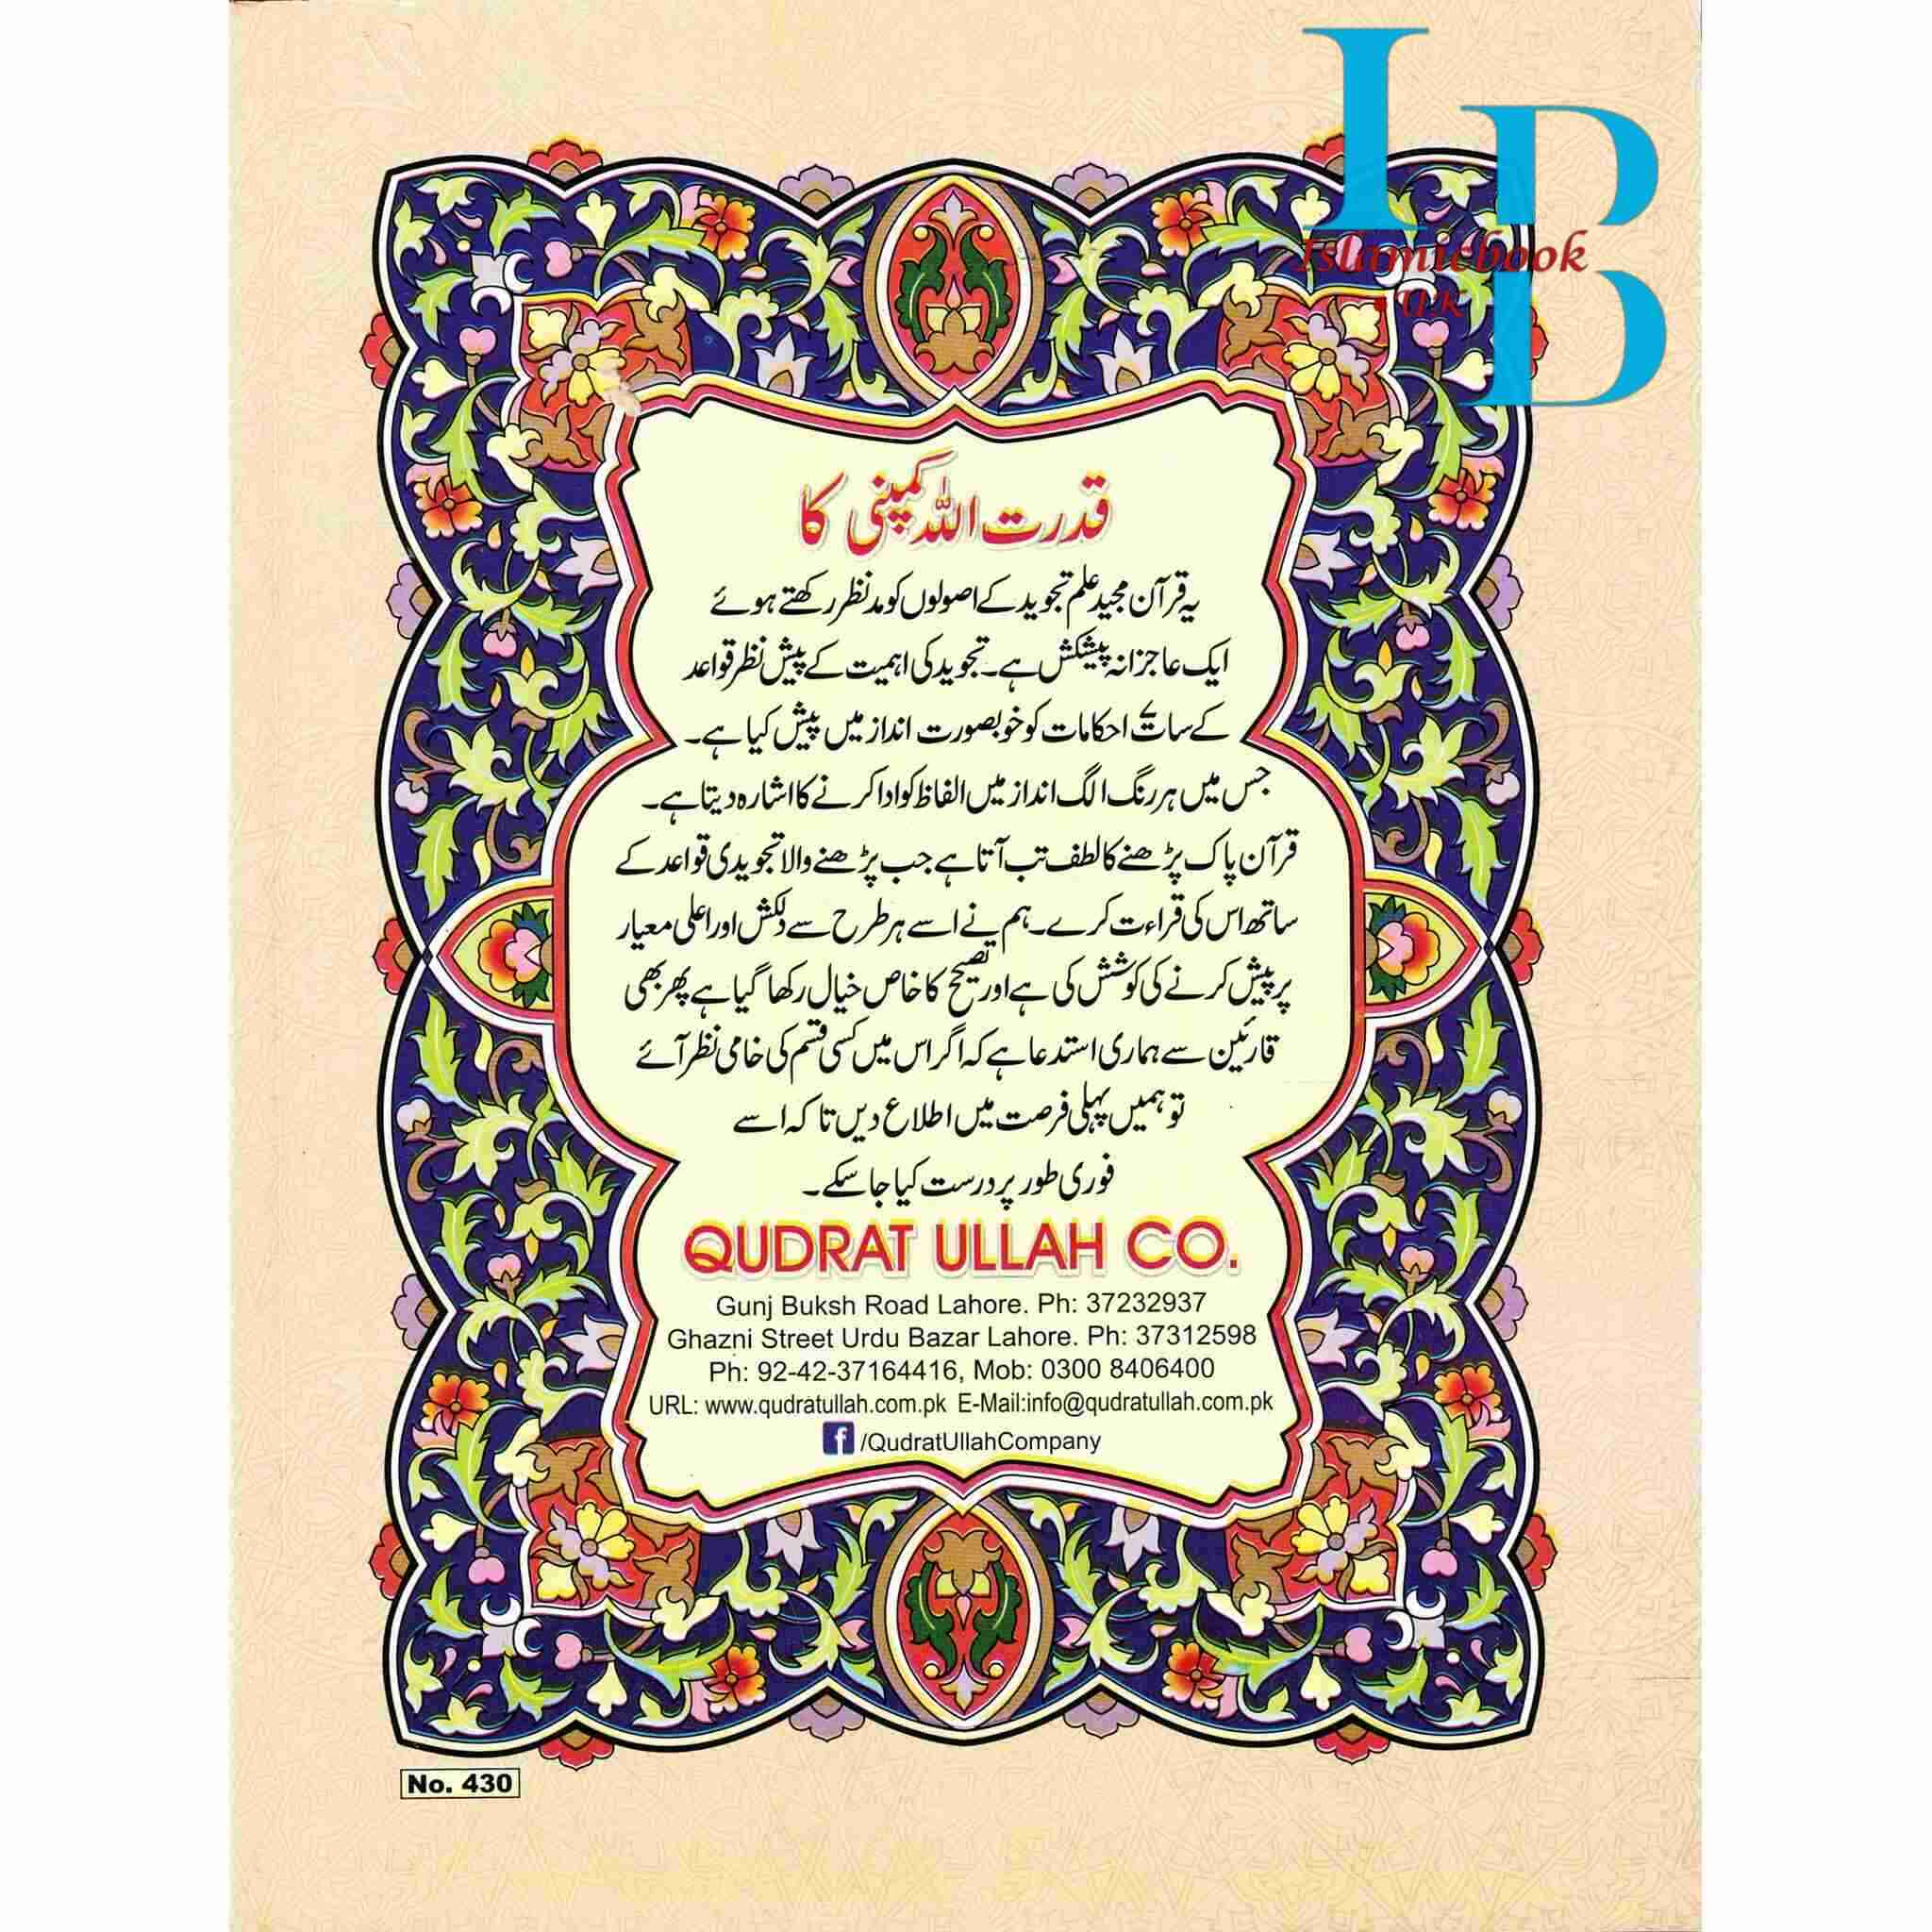 IB
Islamicbook
.UK
قدرت اللہ کمپنی کا
یہ قرآن مجید علم تجوید کے اصولوں کو مدنظر رکھتے ہوئے
ایک عاجزانہ پیشکش ہے۔ تجوید کی اہمیت کے پیش نظر قواعد
کے سات احکامات کو خوبصورت انداز میں پیش کیا ہے۔
جس میں ہر رنگ الگ انداز میں الفاظ کو ادا کرنے کا اشارہ دیتا ہے۔
قرآن پاک پڑھنے کا لطف تب آتا ہے جب پڑھنے والا تجویدی قواعد کے
ساتھ اس کی قراءت کرے۔ ہم نے اسے ہر طرح سے دلکش اور اعلی معیار
پر پیش کرنے کی کوشش کی ہے اور تصیح کا خاص خیال رکھا گیا ہے پھر بھی
قارئین سے ہماری استدعا ہے کہ اگر اس میں کسی قسم کی خامی نظر آئے
تو ہمیں پہلی فرصت میں اطلاع دیں تا کہ اسے
فوری طور پر درست کیا جا سکے۔
QUDRAT ULLAH CO.
Gunj Buksh Road Lahore. Ph: 37232937
Ghazni Street Urdu Bazar Lahore. Ph: 37312598
Ph: 92-42-37164416, Mob: 0300 8406400
URL: www.qudratullah.com.pk E-Mail:info@qudratullah.com.pk
f /QudratUllahCompany
No. 430